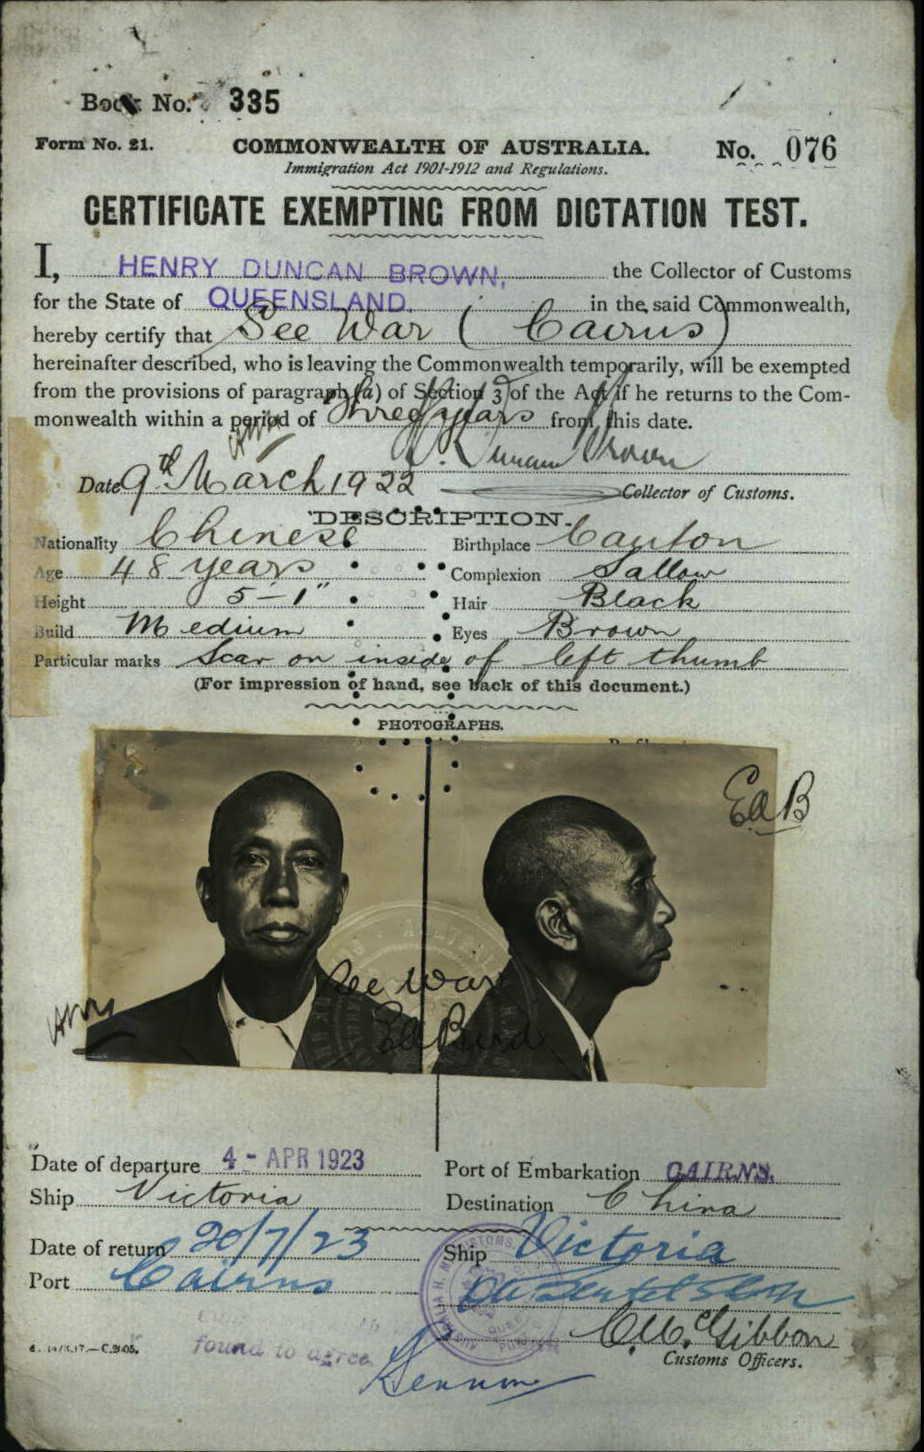 Book No. 335
Form No. 21. COMMONWEALTH OF AUSTRALIA. No. 076
Immigration Act 1901-1912 and Regulations.
CERTIFICATE EXEMPTING FROM DICTATION TEST.
I, HENRY DUNCAN BROWN, the Collector of Customs
for the State of QUEENSLAND. in the said Commonwealth,
hereby certify that See War (Cairns)
hereinafter described, who is leaving the Commonwealth temporarily, will be exempted
from the provisions of paragraph (a) of Section 3 of the Act if he returns to the Com-
monwealth within a period of Three years from this date.
H. Duncan Brown
Date 9th March 1922 Collector of Customs.
DESCRIPTION.
Nationality Chinese Birthplace Canton
Age 48 years Complexion Sallow
Height 5-1" Hair Black
Build Medium Eyes Brown
Particular marks Scar on inside of left thumb
(For impression of hand, see back of this document.)
PHOTOGRAPHS.
EaB
See War
Date of departure 4 - APR 1923 Port of Embarkation CAIRNS.
Ship Victoria Destination China
Date of return 20/7/23 Ship Victoria
Port Cairns
found to agree
Customs Officers.